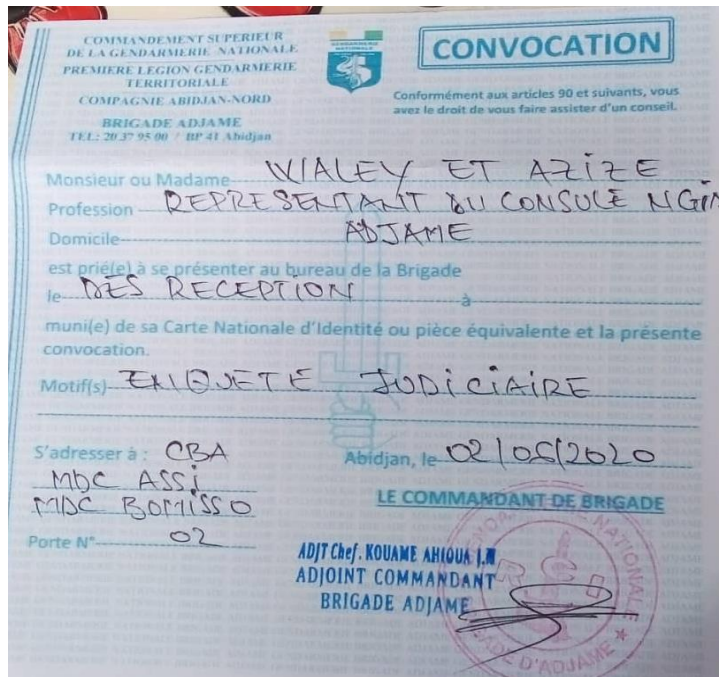 COMMANDEMENT SUPERIEUR
DE LA GENDARMERIE NATIONALE
PREMIERE LEGION GENDARMERIE
TERRITORIALE
COMPAGNIE ABIDJAN-NORD
BRIGADE ADJAME
TEL: 20 37 95 00 / BP 41 Abidjan
GENDARMERIE
NATIONALE
CONVOCATION
Conformément aux articles 90 et suivants, vous
avez le droit de vous faire assister d'un conseil.
Monsieur ou Madame WALEY ET AZIZE
Profession REPRESENTANT DU CONSULE
Domicile ADJAME
est prié(e) à se présenter au bureau de la Brigade
le DES RECEPTION à
muni(e) de sa Carte Nationale d'Identité ou pièce équivalente et la présente
convocation.
Motif(s) ENQUETE JUDICIAIRE
S'adresser à : CBA
MDC ASSI
MDC BOMISSO
Porte N° 02
Abidjan, le 02/06/2020
LE COMMANDANT DE BRIGADE
ADJT Chef. KOUAME AHIOUA J.N
ADJOINT COMMANDANT
BRIGADE ADJAME
GENDARMERIE NATIONALE
BRIGADE D'ADJAME